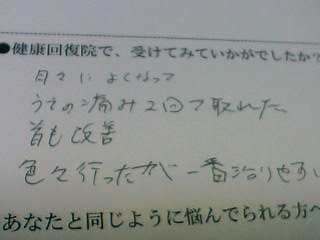 ●健康回復院で、受けてみていかがでしたか?
日々によくなって
うその痛み2回で取れた
首も改善
色々行ったが一番治りやすい
あなたと同じように悩んでられる方へ